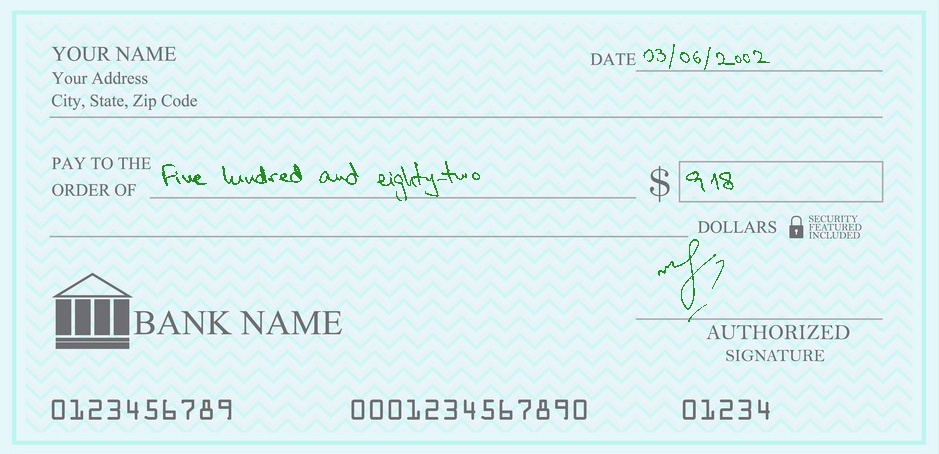 YOUR NAME
Your Address
City, State, Zip Code
DATE 03/06/2002
PAY TO THE
ORDER OF Five hundred and eighty-two $ 918
DOLLARS SECURITY
FEATURED
INCLUDED
BANK NAME
AUTHORIZED
SIGNATURE
0123456789 0001234567890 01234